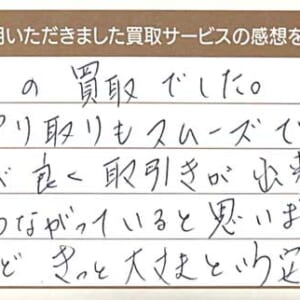 用いただきました買取サービスの感想を
の買取でした。
り取りもスムーズで
良く取引きが出来
つながっていると思いま
ど きっと大丈夫という安